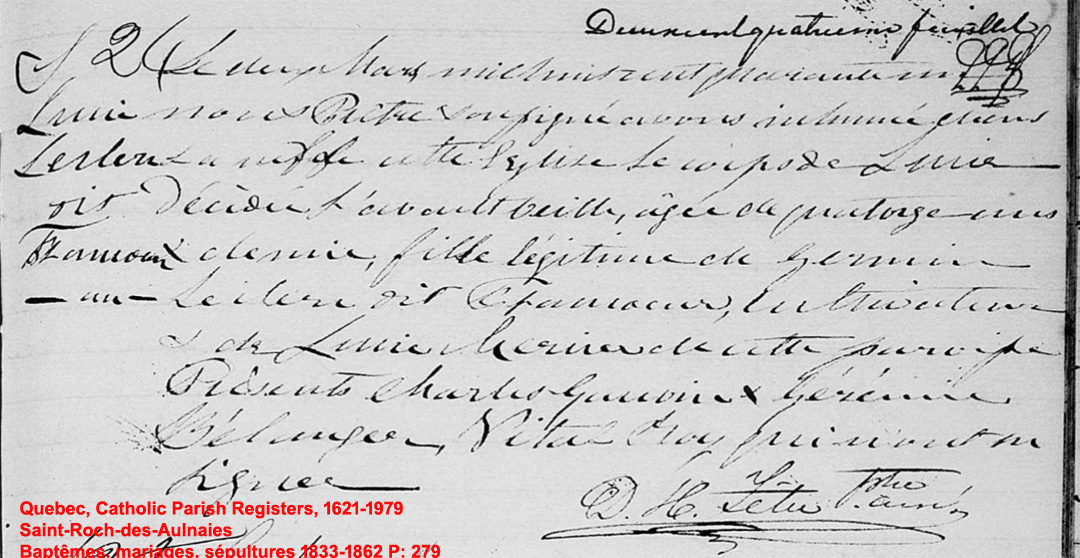 Deux cent quatrieme feuillet
S 26 Le deux Mars mil huit cent quarante un
Lucie nous Prêtre soussigné avons inhumé dans
Leclerc la nef de cette Eglise le corps de Lucie
dit Décédée l'avant veille, âgée de quatorze ans
Francoeur & demie, fille légitime de Germain
— — Leclerc dit Francoeur, Cultivateur
& de Lucie Mercier de cette paroisse
Présents Charles Gauvin & Gérémie
Bélanger, Vital Roy qui n'ont su
signer —
D. H. Tetu Ptre Curé
Quebec, Catholic Parish Registers, 1621-1979
Saint-Roch-des-Aulnaies
Baptêmes, mariages, sépultures 1833-1862 P: 279